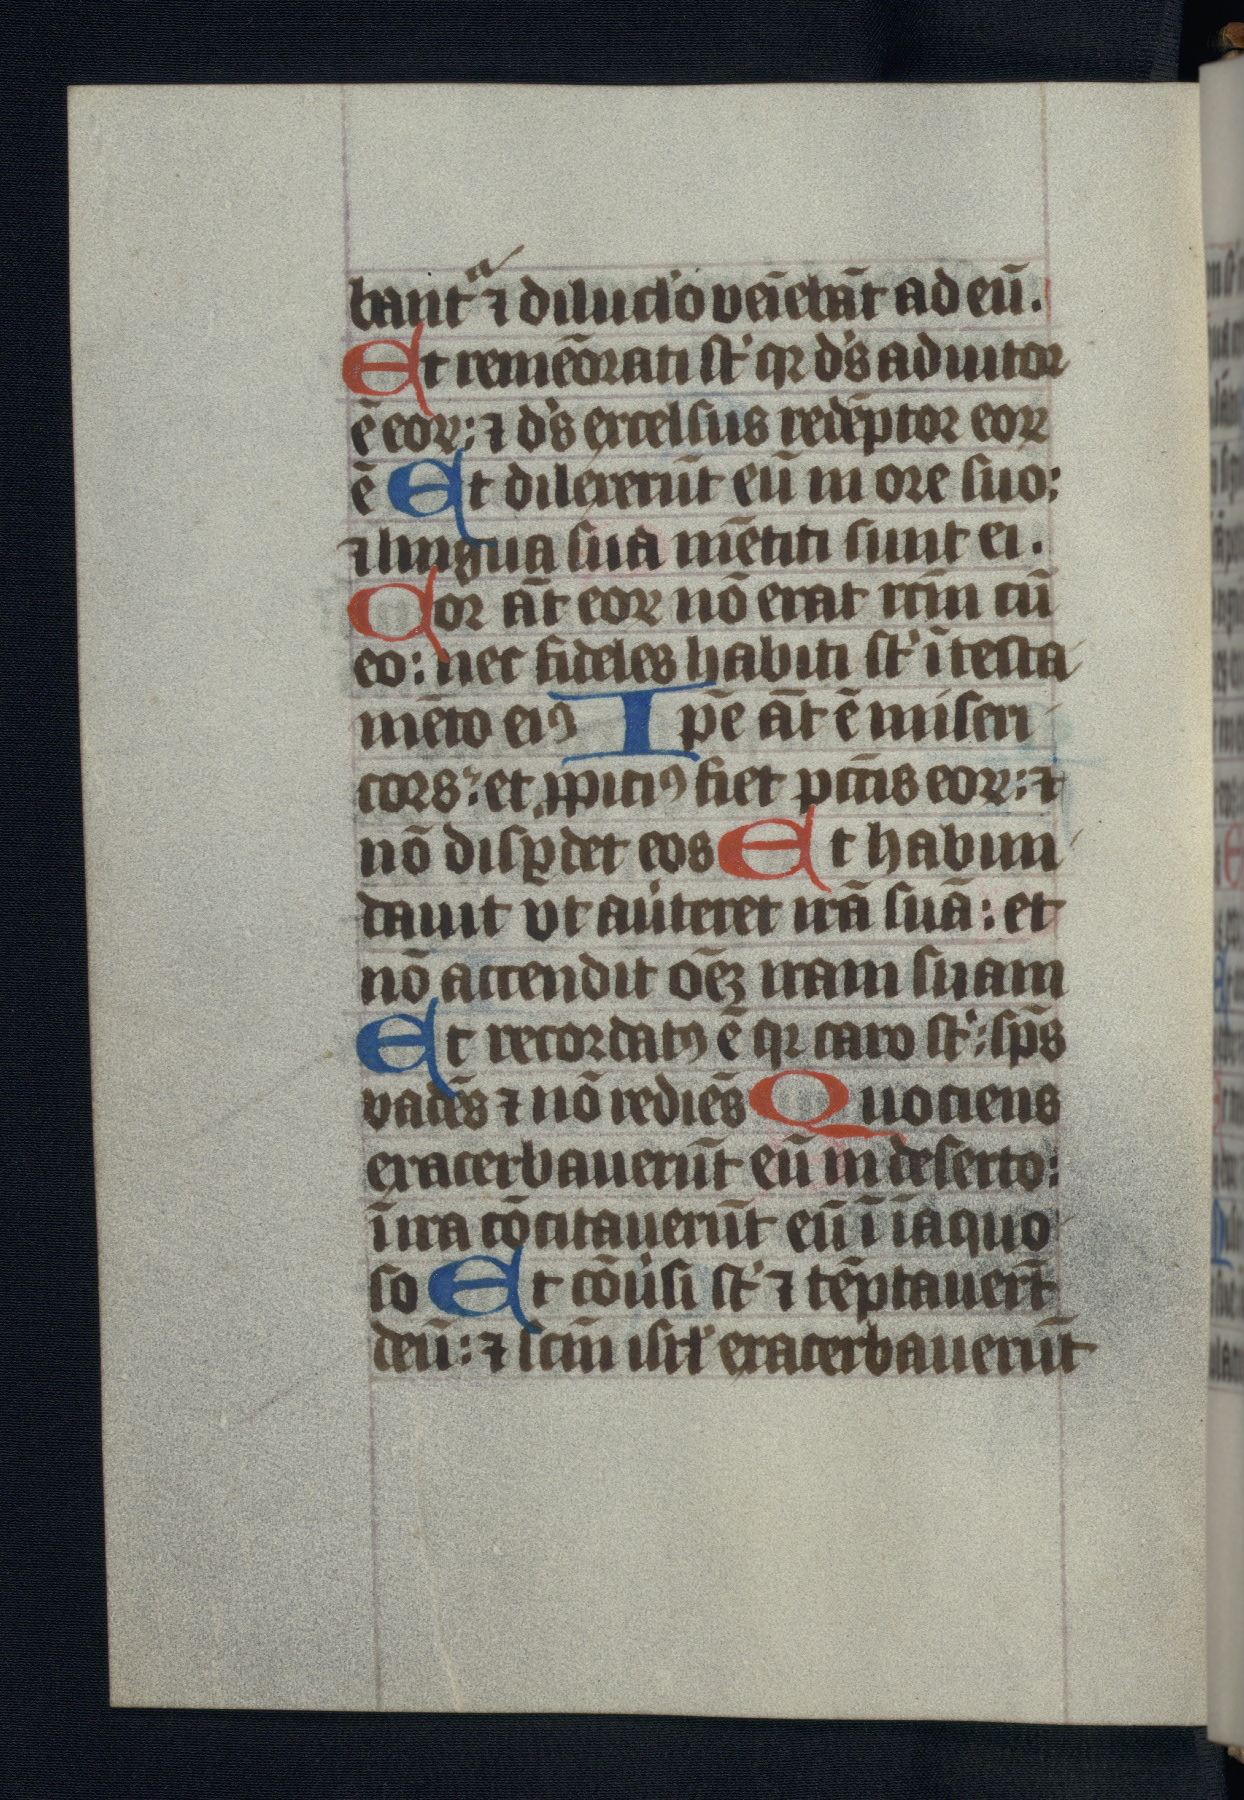 bant᷑ ⁊ diluc̓lo vēiebāt ad eū.
Et remēorati st̓ qꝛ d̓s adiutor
ē eoꝝ: ⁊ d̓s excelsus redēptor eoꝝ
ē Et dilexerūt eū in ore suo:
⁊ lingua sua mētiti sunt ei.
Cor āt eoꝝ nō erat rc̄m cū
eo: nec fideles habiti st̓ ī testa
mēto eiꝰ Ip̄e āt ē miseri
cors: et ꝓpiciꝰ fiet pc̄tis eoꝝ: ⁊
nō disꝑdet eos Et habun
dauit vt aúteret irā suā: et
nō accendit oēꝫ iram suam
Et recordatꝰ ē qꝛ caro st̓: sp̄s
vadēs ⁊ nō rediēs Quociens
exacerbauerūt eū in deserto:
ī ira cōcitauerūt eū ī īaquo
so Et cōu̓si st̓ ⁊ tēptauert̄
deū: ⁊ sc̄m isrl̓ exacerbauerūt